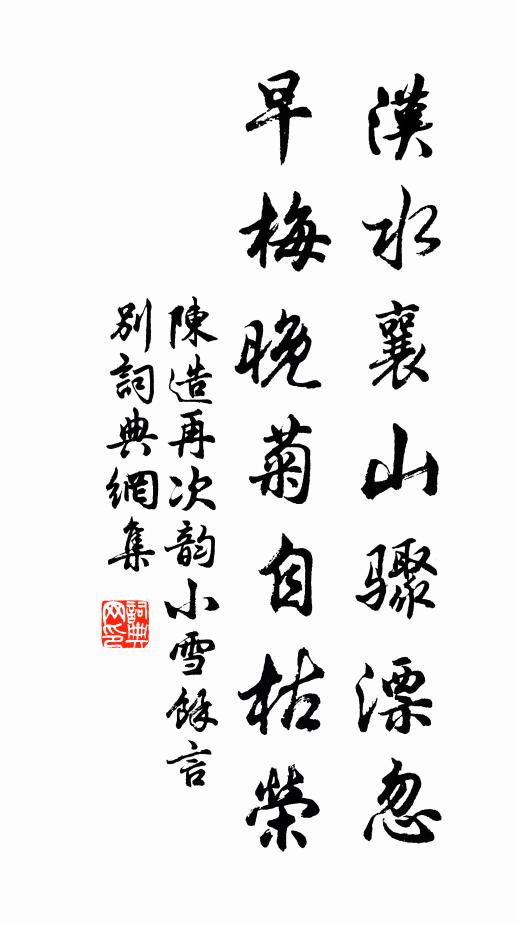 漢水襄山驟漂忽
早梅晚菊自枯榮
陳造再次韵小雪餘言
別詞典網集
詞典网印